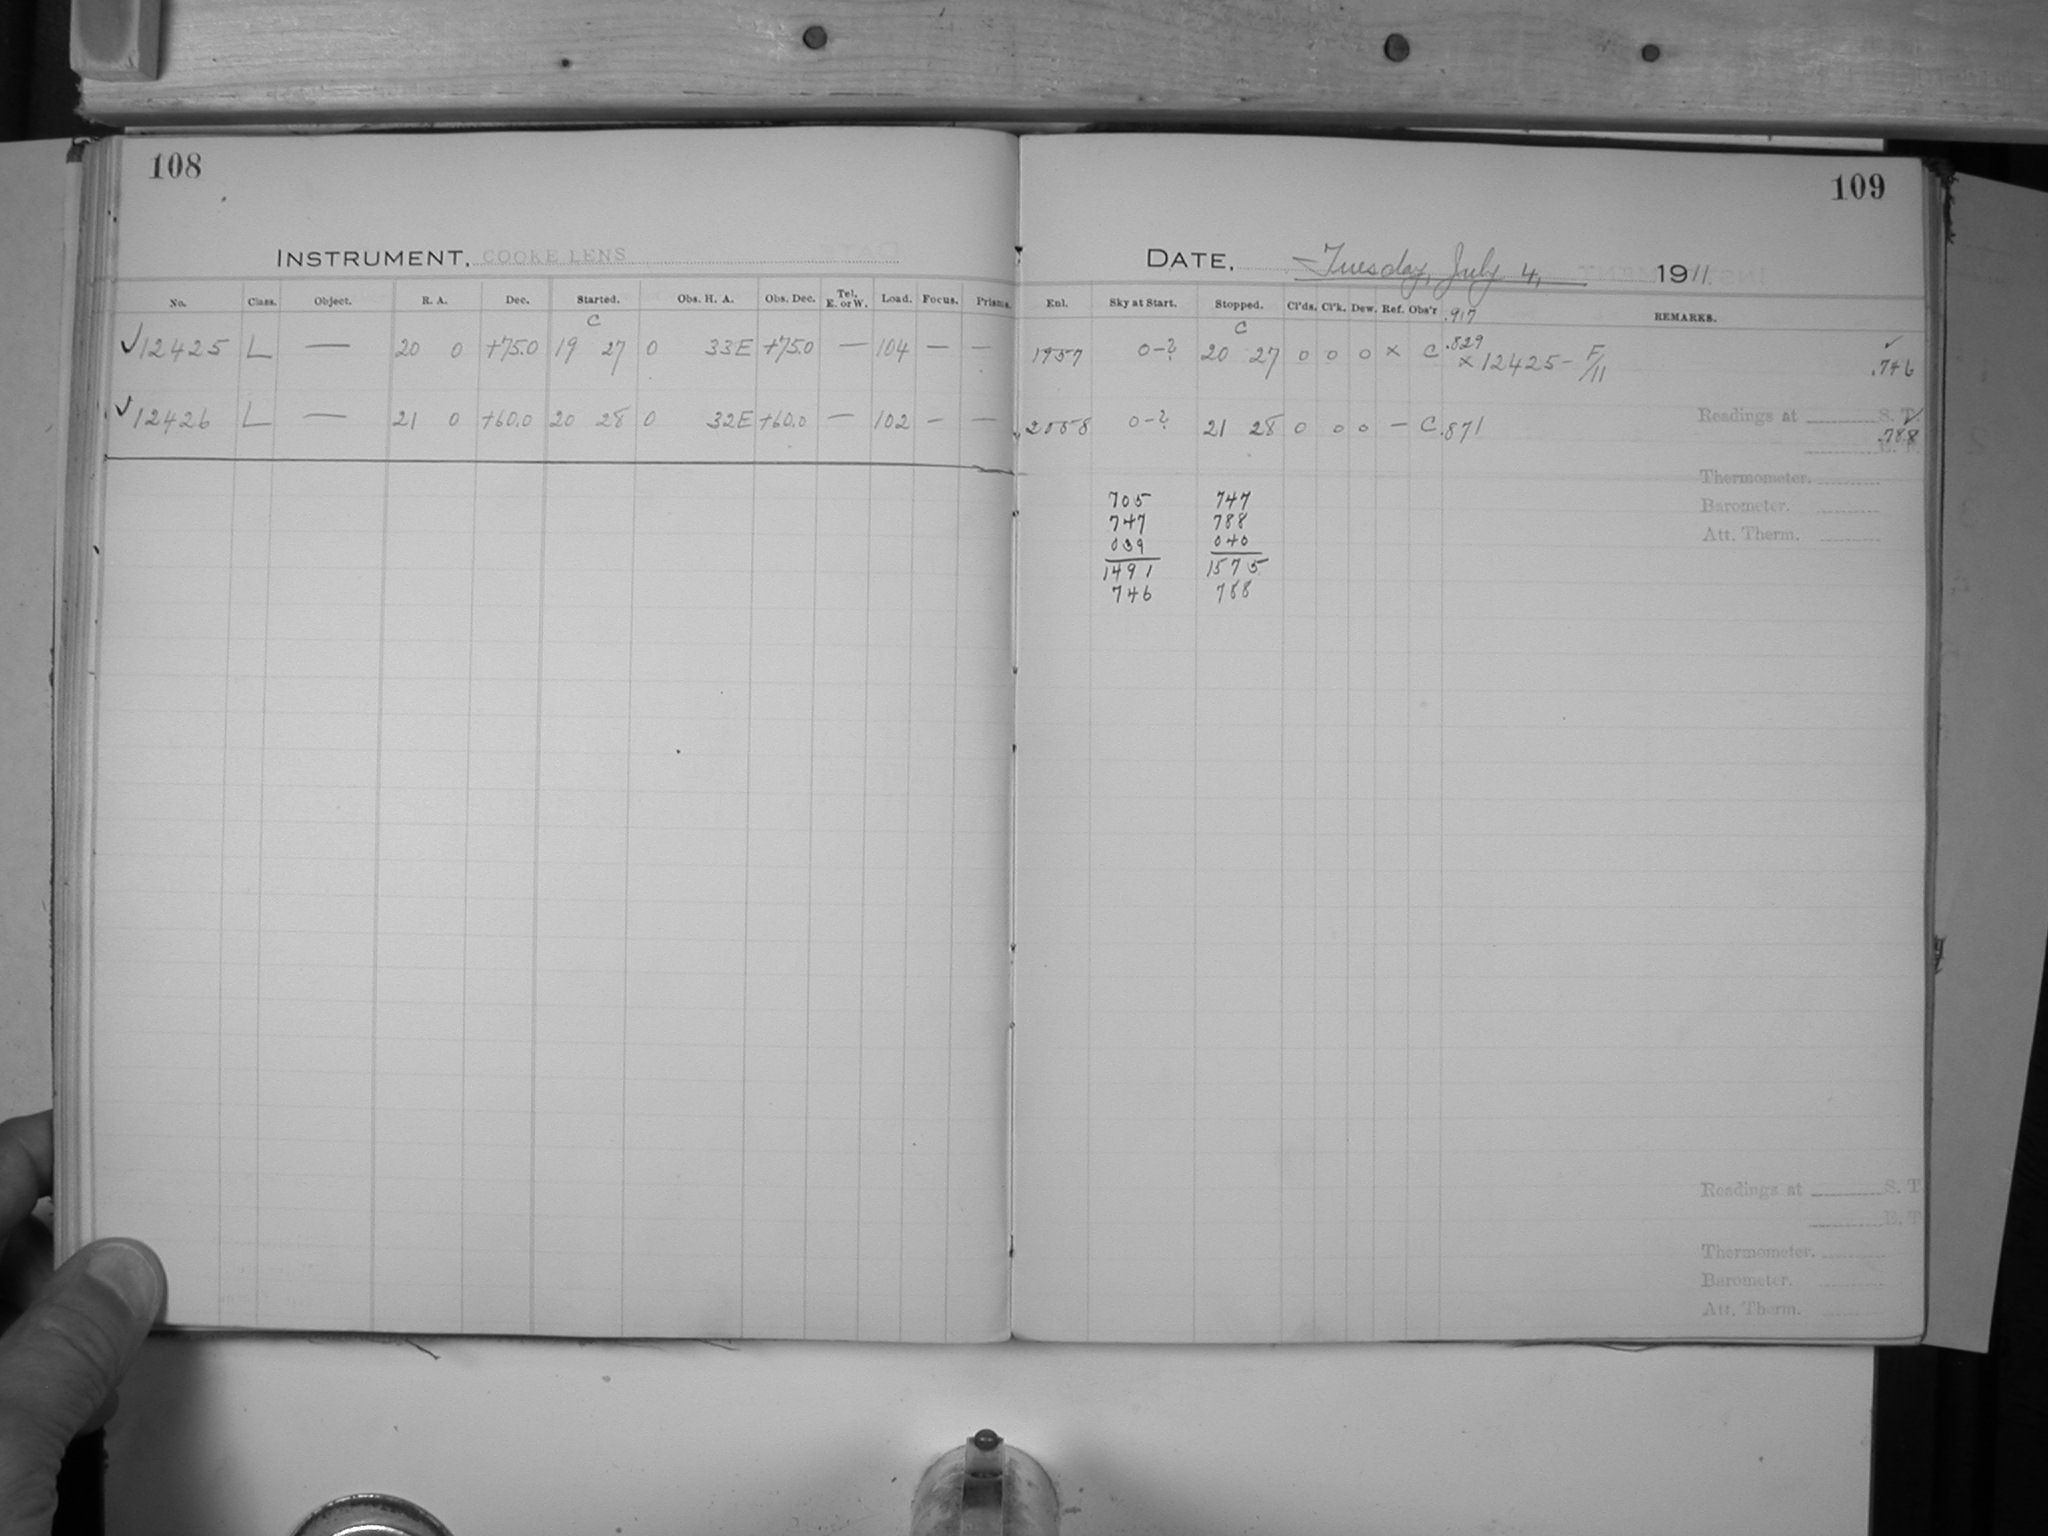 108
INSTRUMENT, COOKE LENS
No. Class. Object. R. A. Dec. Started. Obs. H. A. Obs. Dec. Tel. E. or W. Load. Focus. Prisms.
C
✓12425 L — 20 0 +75.0 19 27 0 33E +75.0 — 104 — —
✓12426 L — 21 0 +60.0 20 28 0 32E +60.0 — 102 — —
109
DATE, Tuesday, July 4, 1911.
Enl. Sky at Start. Stopped. Cl'ds. Cl'k. Dew. Ref. Obs'r REMARKS.
.917
C
.829 ✓
1957 0-? 20 27 0 0 0 × C × 12425 - F/11 .746
Readings at S. T.
2058 0-? 21 28 0 0 0 — C .871 .788
E. T.
Thermometer.
Barometer.
Att. Therm.
705 747
747 788
039 040
1491 1575
746 788
Readings at S. T.
E. T.
Thermometer.
Barometer.
Att. Therm.